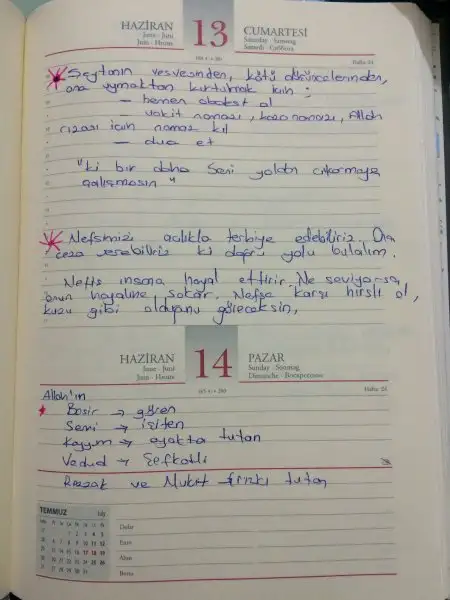 HAZİRAN
June - Juni
Juin - Июнь
13
CUMARTESİ
Saturday - Samstag
Samedi - Суббота
Hafta: 24
Şeytanın vesvesinden, kötü düşüncelerinden,
ona uymaktan kurtulmak için :
— hemen abdest al
— vakit namazı, kaza namazı, Allah
rızası için namaz kıl
— dua et
"ki bir daha seni yoldan çıkarmaya
çalışmasın"
Nefsimizi açlıkla terbiye edebiliriz. Ona
ceza verebiliriz ki doğru yolu bulalım.
Nefis insana hayal ettirir. Ne seviyorsa,
onun hayaline sokar. Nefse karşı hırslı ol,
kuzu gibi olduğunu göreceksin,
HAZİRAN
June - Juni
Juin - Июнь
14
PAZAR
Sunday - Sonntag
Dimanche - Воскресенье
Hafta: 24
Allah'ın
Basir → gören
Semi → işiten
Kayyum → ayakta tutan
Vedud → Şefkatli
Rezzak ve Mukit
TEMMUZ July
Dolar
Euro
Altın
Borsa